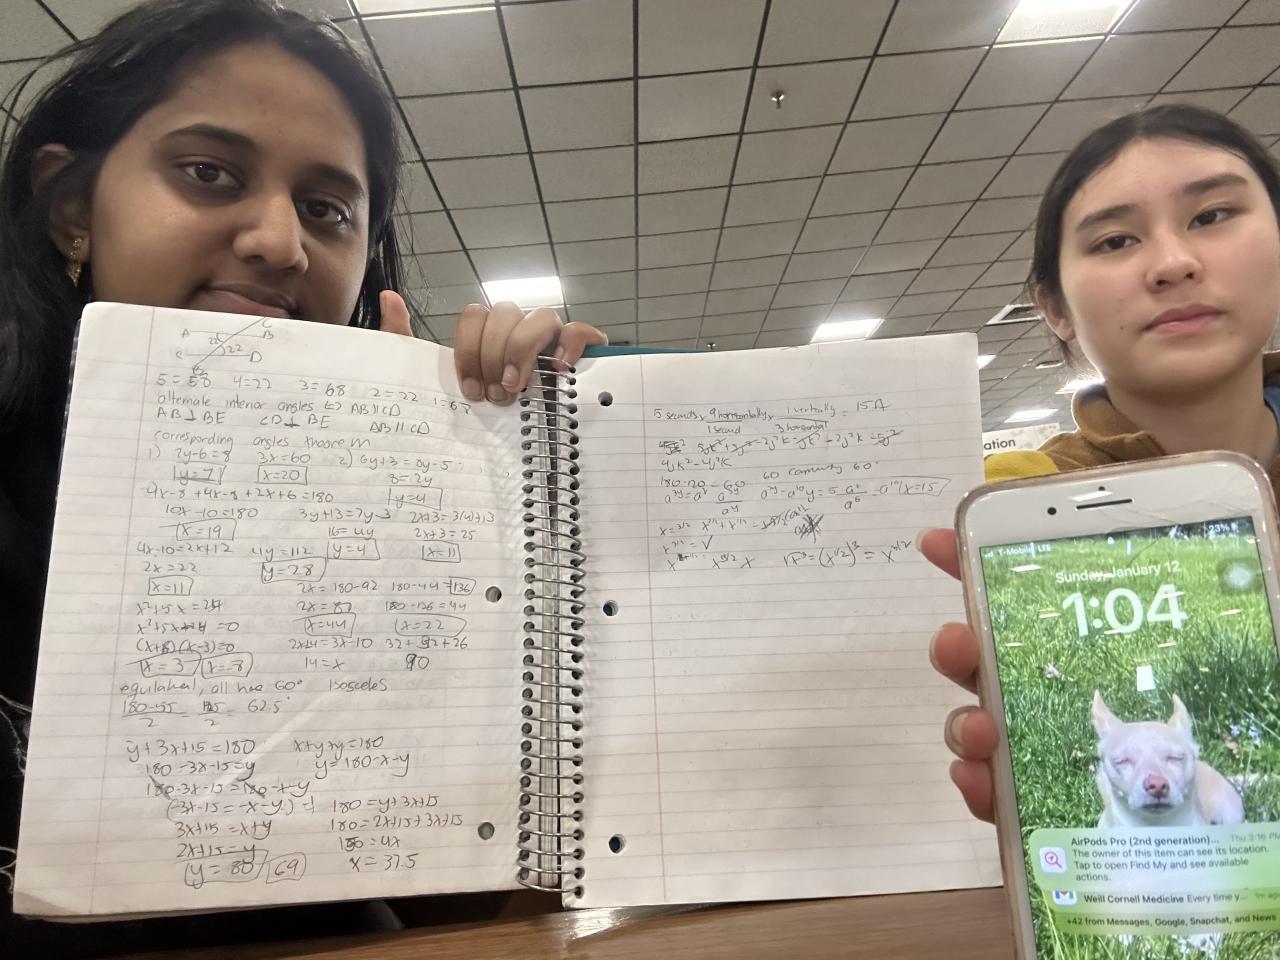 C
A B
22
22
C D
5 = 58 4=22 3 = 68 2 = 22 1=68
alternate interior angles ⇔ AB||CD
AB⊥BE CD⊥BE AB||CD
corresponding angles theorem
1) 2y-6=8 3x=60 2) 6y+3=8y-5
y=7 x=20 8=2y
4x-8+4x-8+2x+6=180 y=4
10x-10=180 3y+13=7y-3 2x+3=3(4)+13
x=19 16=4y 2x+3=25
4x-10=2x+12 4y=112 y=4 x=11
2x=22 y=28
x=11 2x=180-92 180-44=136
x²+5x=24 2x=87 180-136=44
x²+5x-24=0 x=44 x=22
(x+8)(x-3)=0 2x+4=3x-10 32+32+26
x=3 x=-8 14=x 90
equilateral, all has 60° isosceles
180-55/2 = 125/2 = 62.5°
y+3x+15=180 x+y+y=180
180-3x-15=y y=180-x-y
180-3x-15=180-x-y
(-3x-15=-x-y)-1 180=y+3x+15
3x+15=x+y 180=2x+15+3x+15
2x+15=y 150=4x
y=80 69 x=37.5
5 seconds x 9 horizontally/1 second x 1 vertically/3 horizontal = 15ft
4jk²-4j²k
180-20=60 60 60°
x=15
x=3/2
√x³=(x^1/2)³=x^3/2
ation
T-Mobile LTE 23%
Sunday, January 12
1:04
AirPods Pro (2nd generation)... Thu 3:16 PM
The owner of this item can see its location.
Tap to open Find My and see available
actions.
Weill Cornell Medicine Every time y... 1m ago
+42 from Messages, Google, Snapchat, and News